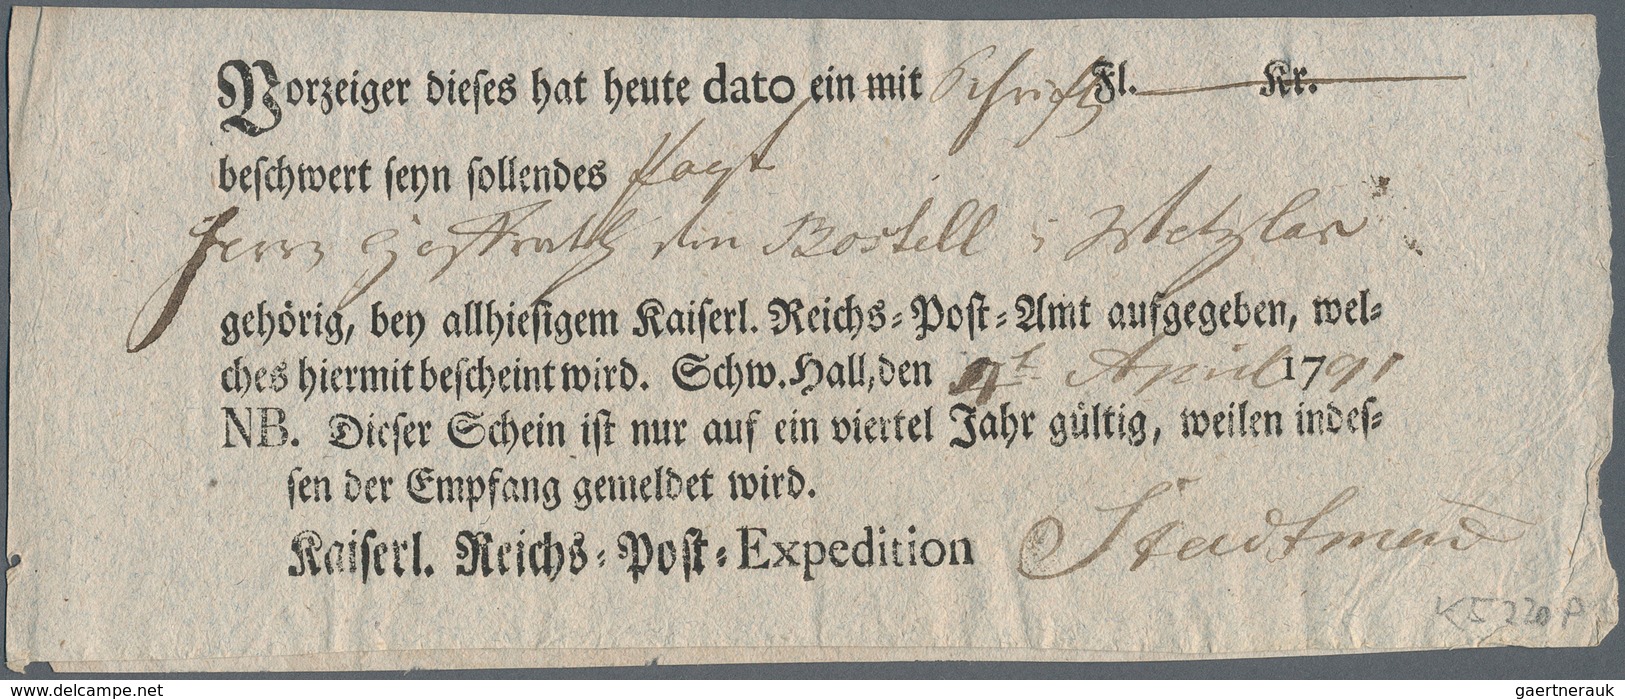 Vorzeiger dieses hat heute dato ein mit Schrift Fl. Kr.
beschwert seyn sollendes
Herrn Hofrath von Bostell in Wetzlar
gehörig, bey allhiesigem Kaiserl. Reichs-Post-Amt aufgegeben, wel-
ches hiermit bescheint wird. Schw. Hall, den 9t April 1791
NB. Dieser Schein ist nur auf ein viertel Jahr gültig, weilen indes-
sen der Empfang gemeldet wird.
Kaiserl. Reichs-Post-Expedition
K5 220 P
www.delcampe.net
gaertnerauk